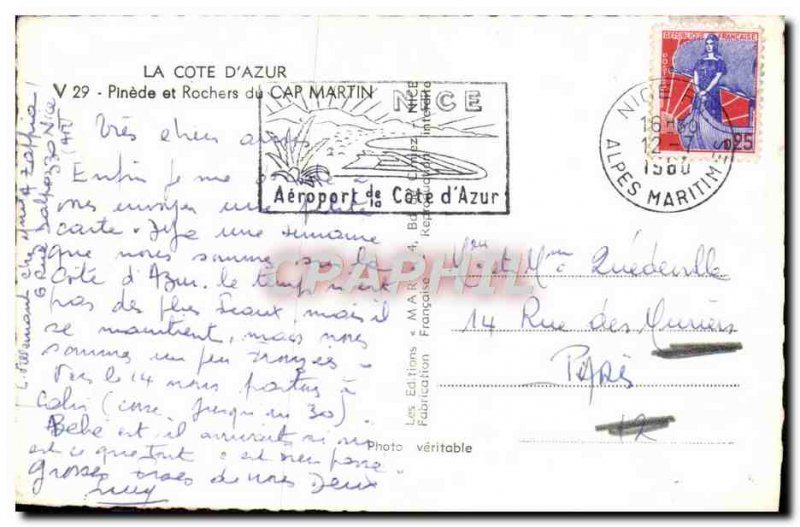 LA COTE D'AZUR
V 29 - Pinède et Rochers du CAP MARTIN
NICE
Aéroport de la Côte d'Azur
REPUBLIQUE FRANÇAISE
0,25
NICE
16-
12-7
1960
ALPES MARITIMES
Très chers
Enfin je me
vous envoyer une petite
carte. Déjà une semaine
que nous sommes sur la
Côte d'Azur. le temps n'est
pas des plus beaux mais il
se maintient, mais nous
sommes un peu
Vers le 14 nous partons à
Calvi (Corse jusqu'au 30).
Bébé est il arrivé si oui
est ce que tout c'est bien passé
grosses bises de nous Deux
chez
Nice
Les Editions « MAR
Fabrication Française
Reproduction interdite
NICE
Photo véritable
CPAPHIL
Mr et Mme Quédeville
14 Rue des Meuniers
PARIS
12